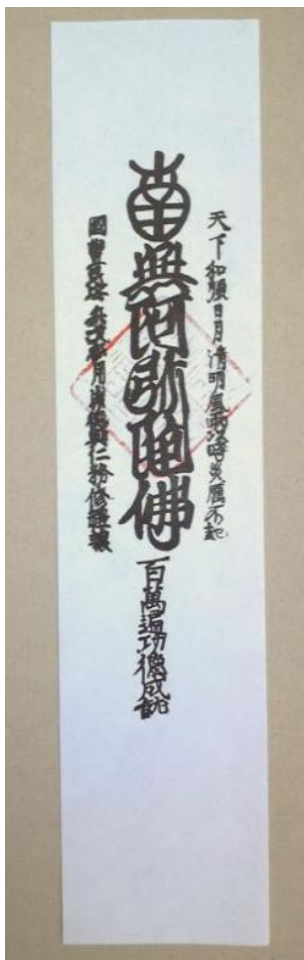 天下和順日月清明風雨以時災厲不起
南無阿弥陀佛
百萬遍功德成就
國豊民安兵戈無用崇徳興仁務修禮讓